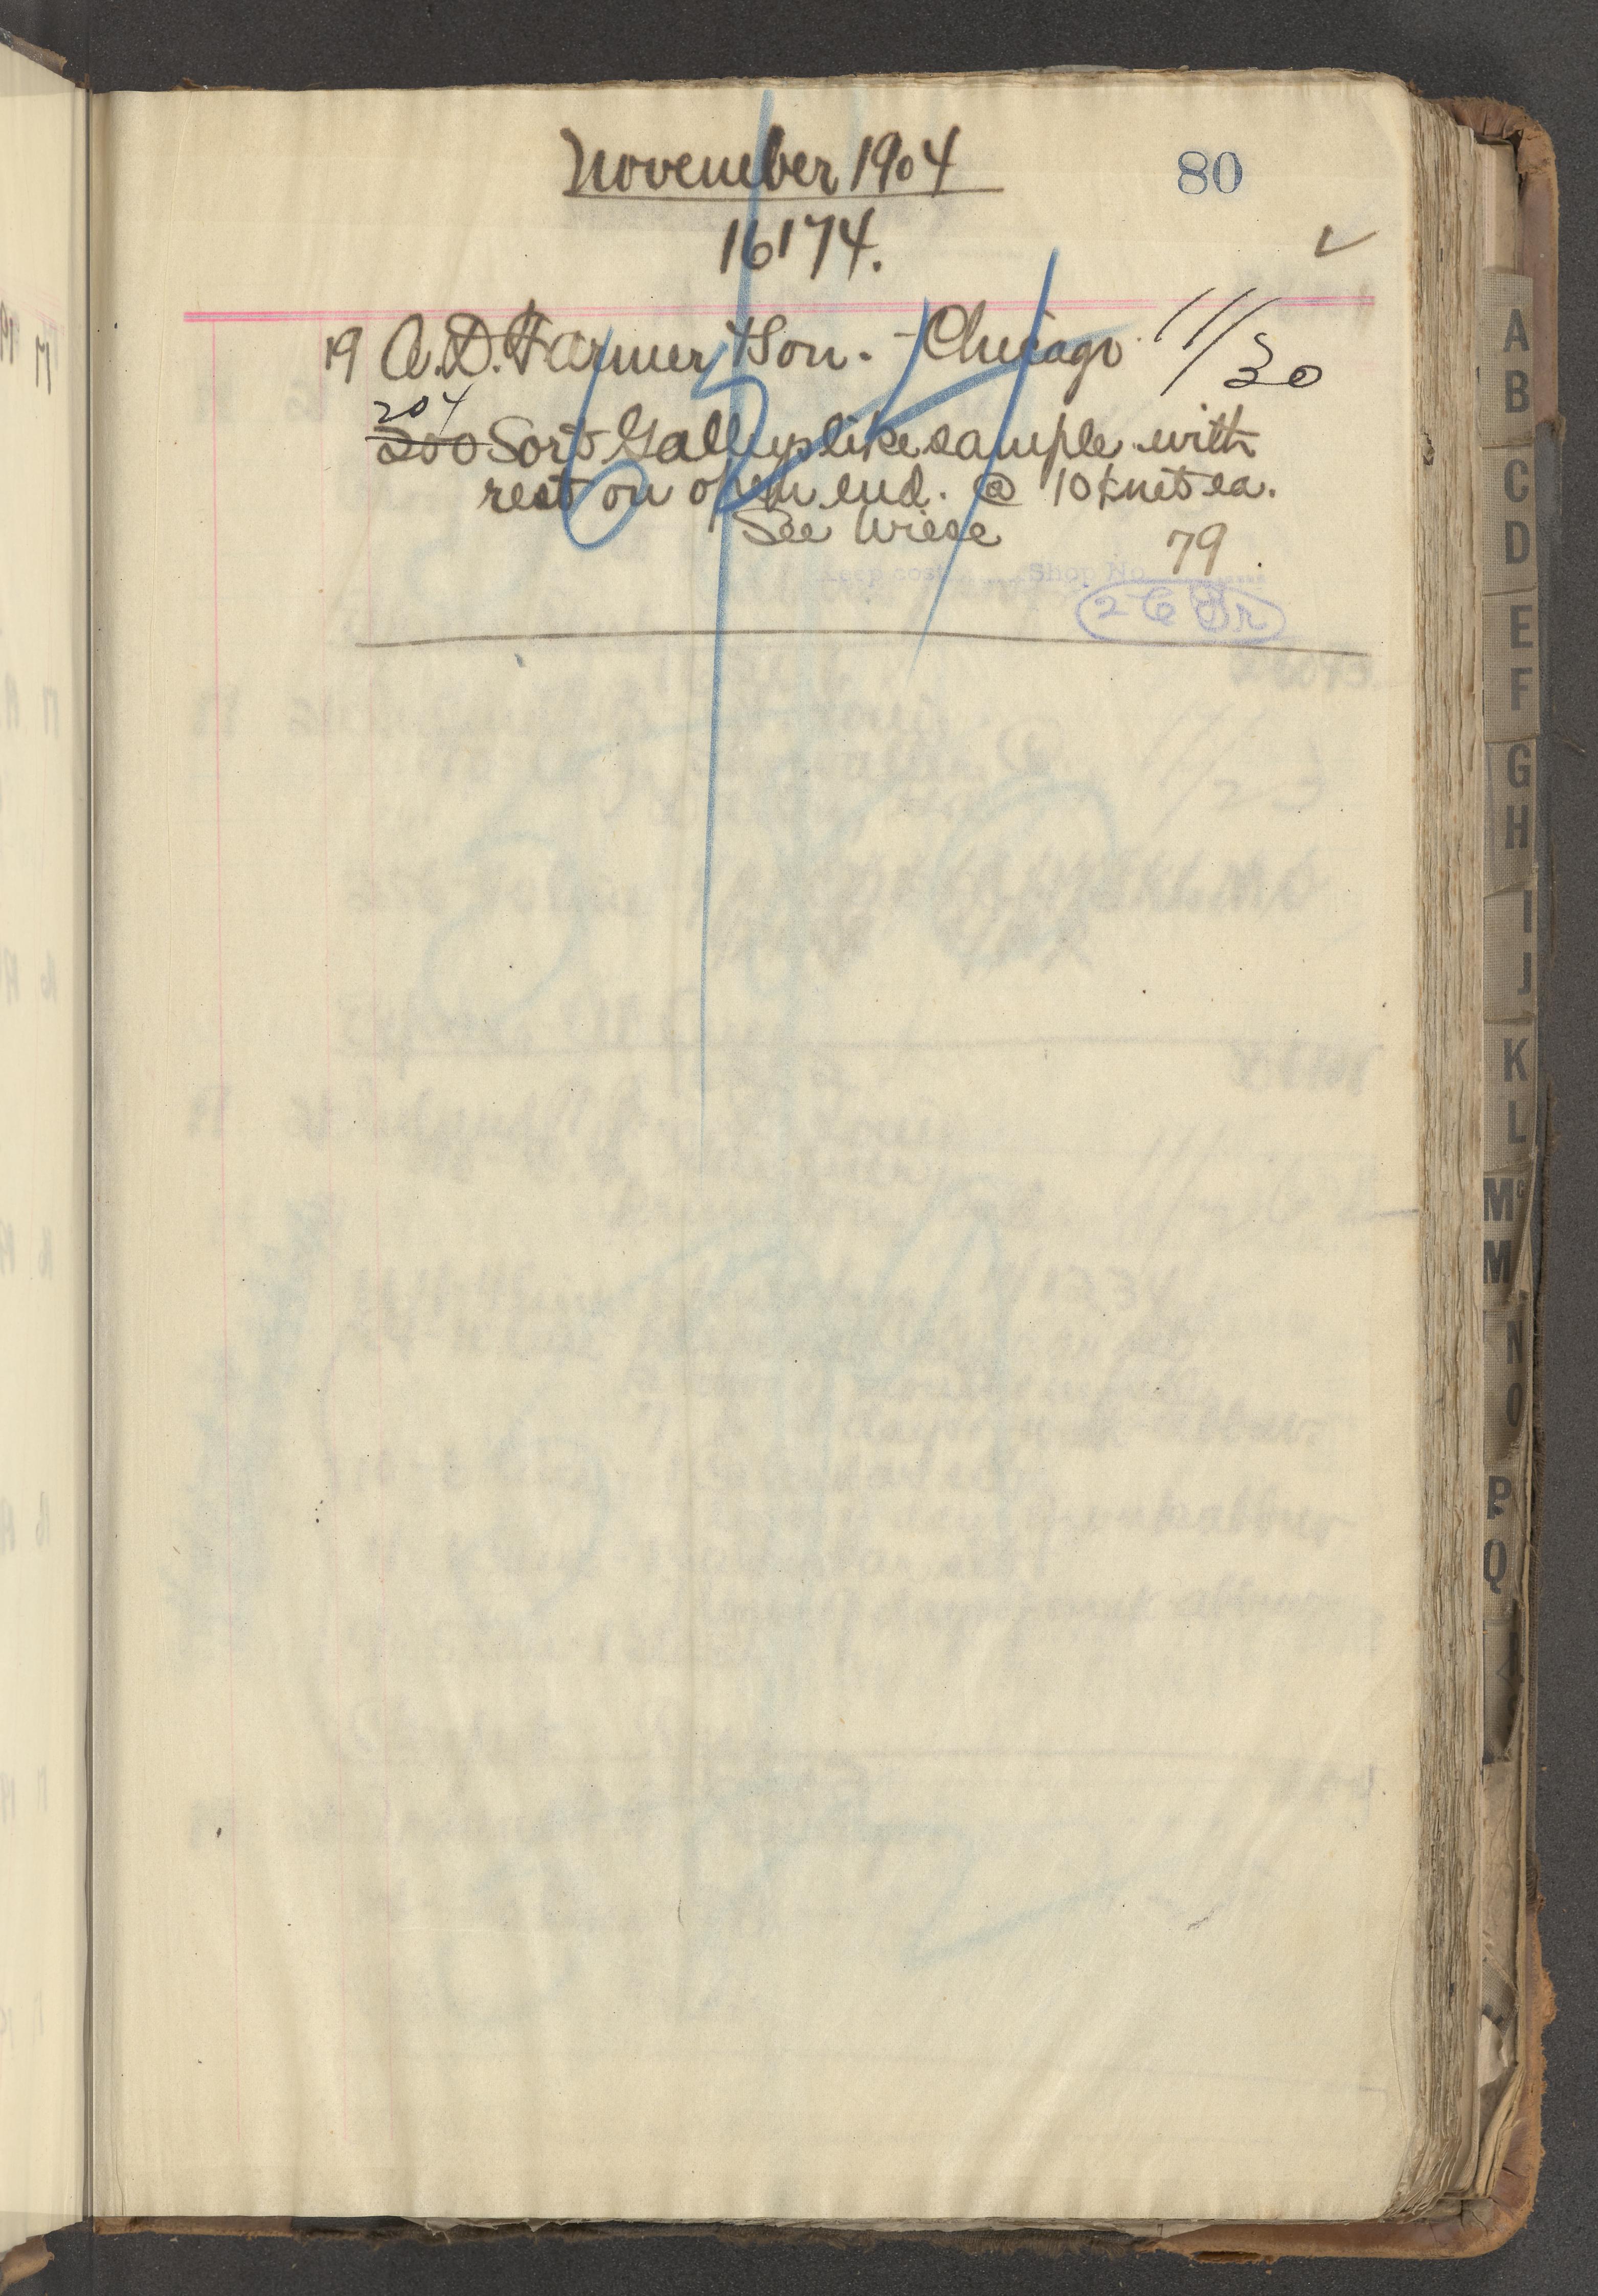 November 1904
80
16174.
19 A.D. Farmer & Son. - Chicago 11/30
204
200 Sort Galleys like sample with
rest on open end. @ 10¢ net ea.
See Wiese
79
Keep cost Shop No.
A
B
C
D
E
F
G
H
I
J
K
L
Mc
M
N
O
P
Q